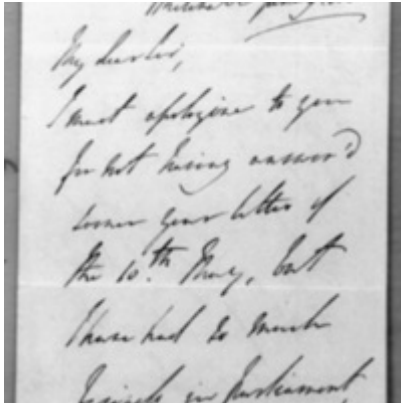 My dear Sir,
I must apologize to you
for not having answer'd
sooner your letter of
the 10.th May, but
I have had so much
business in Parliament,